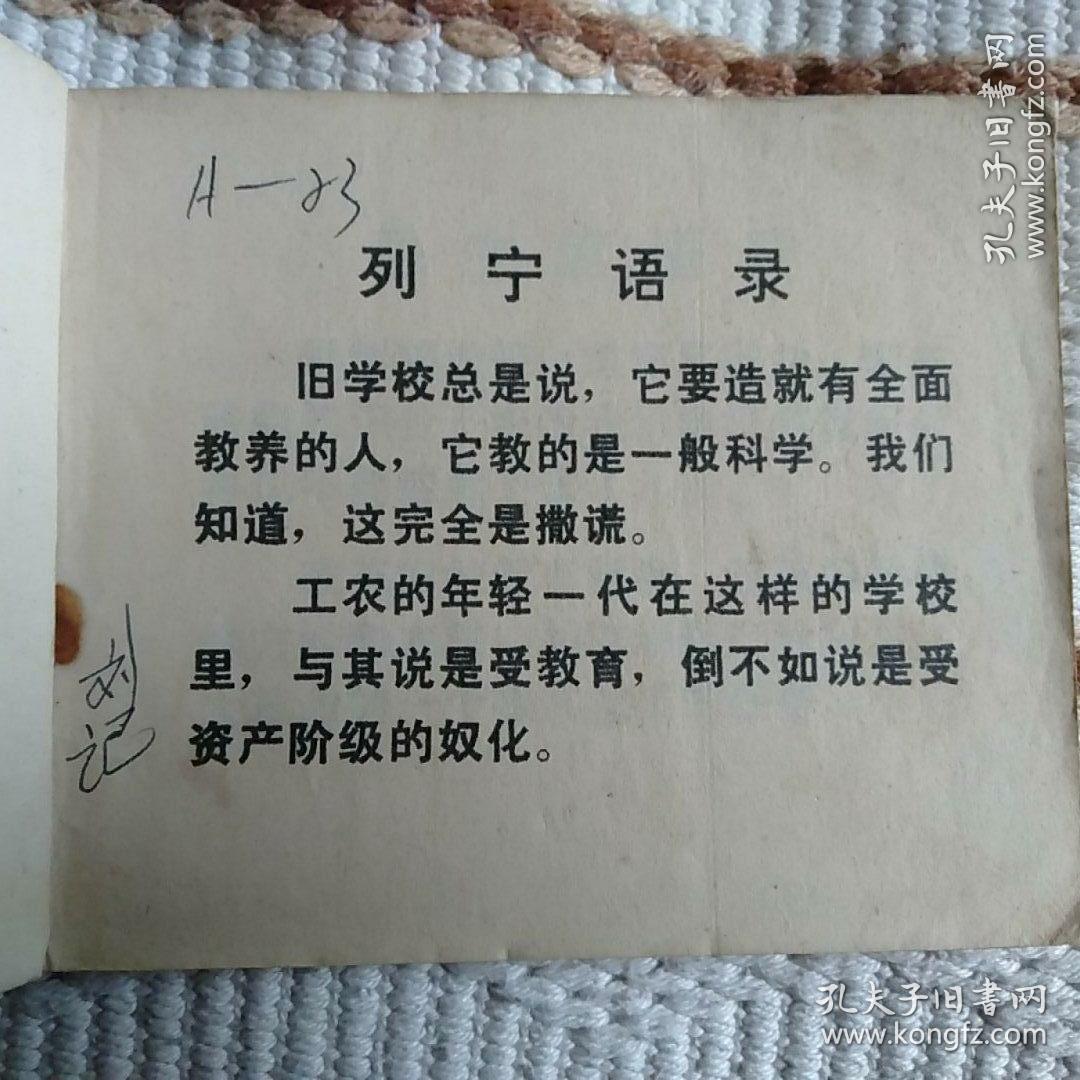 孔夫子旧书网
www.kongfz.com
A—23
列宁语录
旧学校总是说，它要造就有全面
教养的人，它教的是一般科学。我们
知道，这完全是撒谎。
工农的年轻一代在这样的学校
里，与其说是受教育，倒不如说是受
资产阶级的奴化。
刘记
孔夫子旧书网
www.kongfz.com